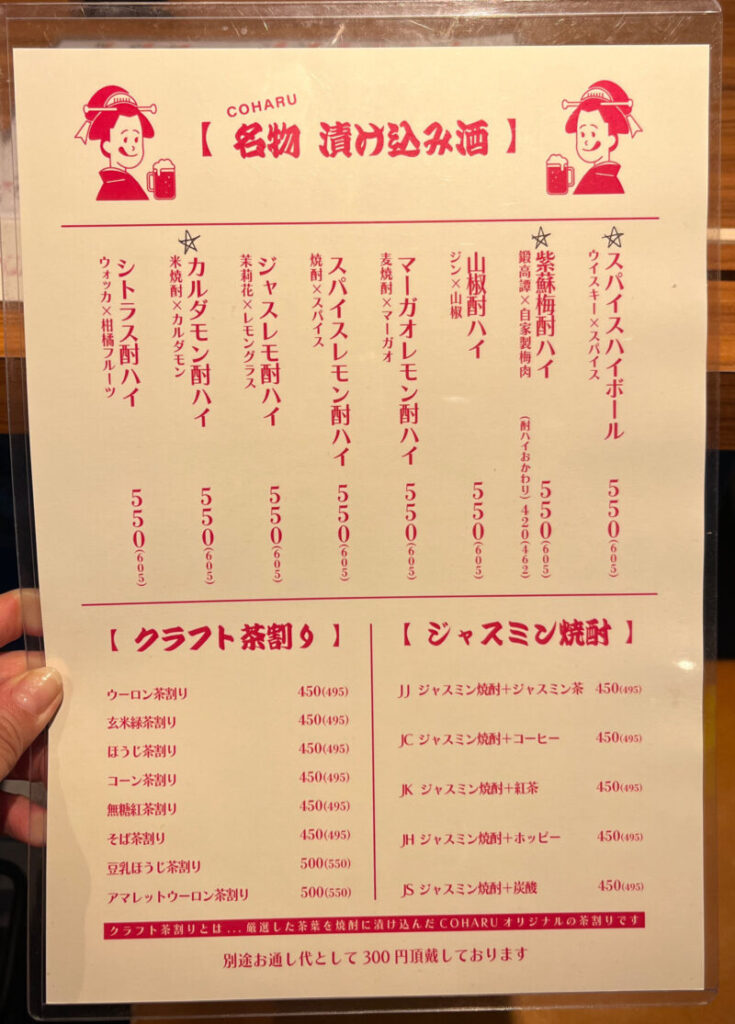 COHARU
【 名物 漬け込み酒 】
☆スパイスハイボール 550(605)
ウイスキー×スパイス
☆紫蘇梅酎ハイ 550(605)
鍛高譚×自家製梅肉 (酎ハイおかわり) 420(462)
山椒酎ハイ 550(605)
ジン×山椒
マーガオレモン酎ハイ 550(605)
麦焼酎×マーガオ
スパイスレモン酎ハイ 550(605)
焼酎×スパイス
ジャスレモ酎ハイ 550(605)
茉莉花×レモングラス
☆カルダモン酎ハイ 550(605)
米焼酎×カルダモン
シトラス酎ハイ 550(605)
ウォッカ×柑橘フルーツ
【 クラフト茶割り 】
ウーロン茶割り 450(495)
玄米緑茶割り 450(495)
ほうじ茶割り 450(495)
コーン茶割り 450(495)
無糖紅茶割り 450(495)
そば茶割り 450(495)
豆乳ほうじ茶割り 500(550)
アマレットウーロン茶割り 500(550)
【 ジャスミン焼酎 】
JJ ジャスミン焼酎+ジャスミン茶 450(495)
JC ジャスミン焼酎+コーヒー 450(495)
JK ジャスミン焼酎+紅茶 450(495)
JH ジャスミン焼酎+ホッピー 450(495)
JS ジャスミン焼酎+炭酸 450(495)
クラフト茶割りとは...厳選した茶葉を焼酎に漬け込んだCOHARUオリジナルの茶割りです
別途お通し代として300円頂戴しております